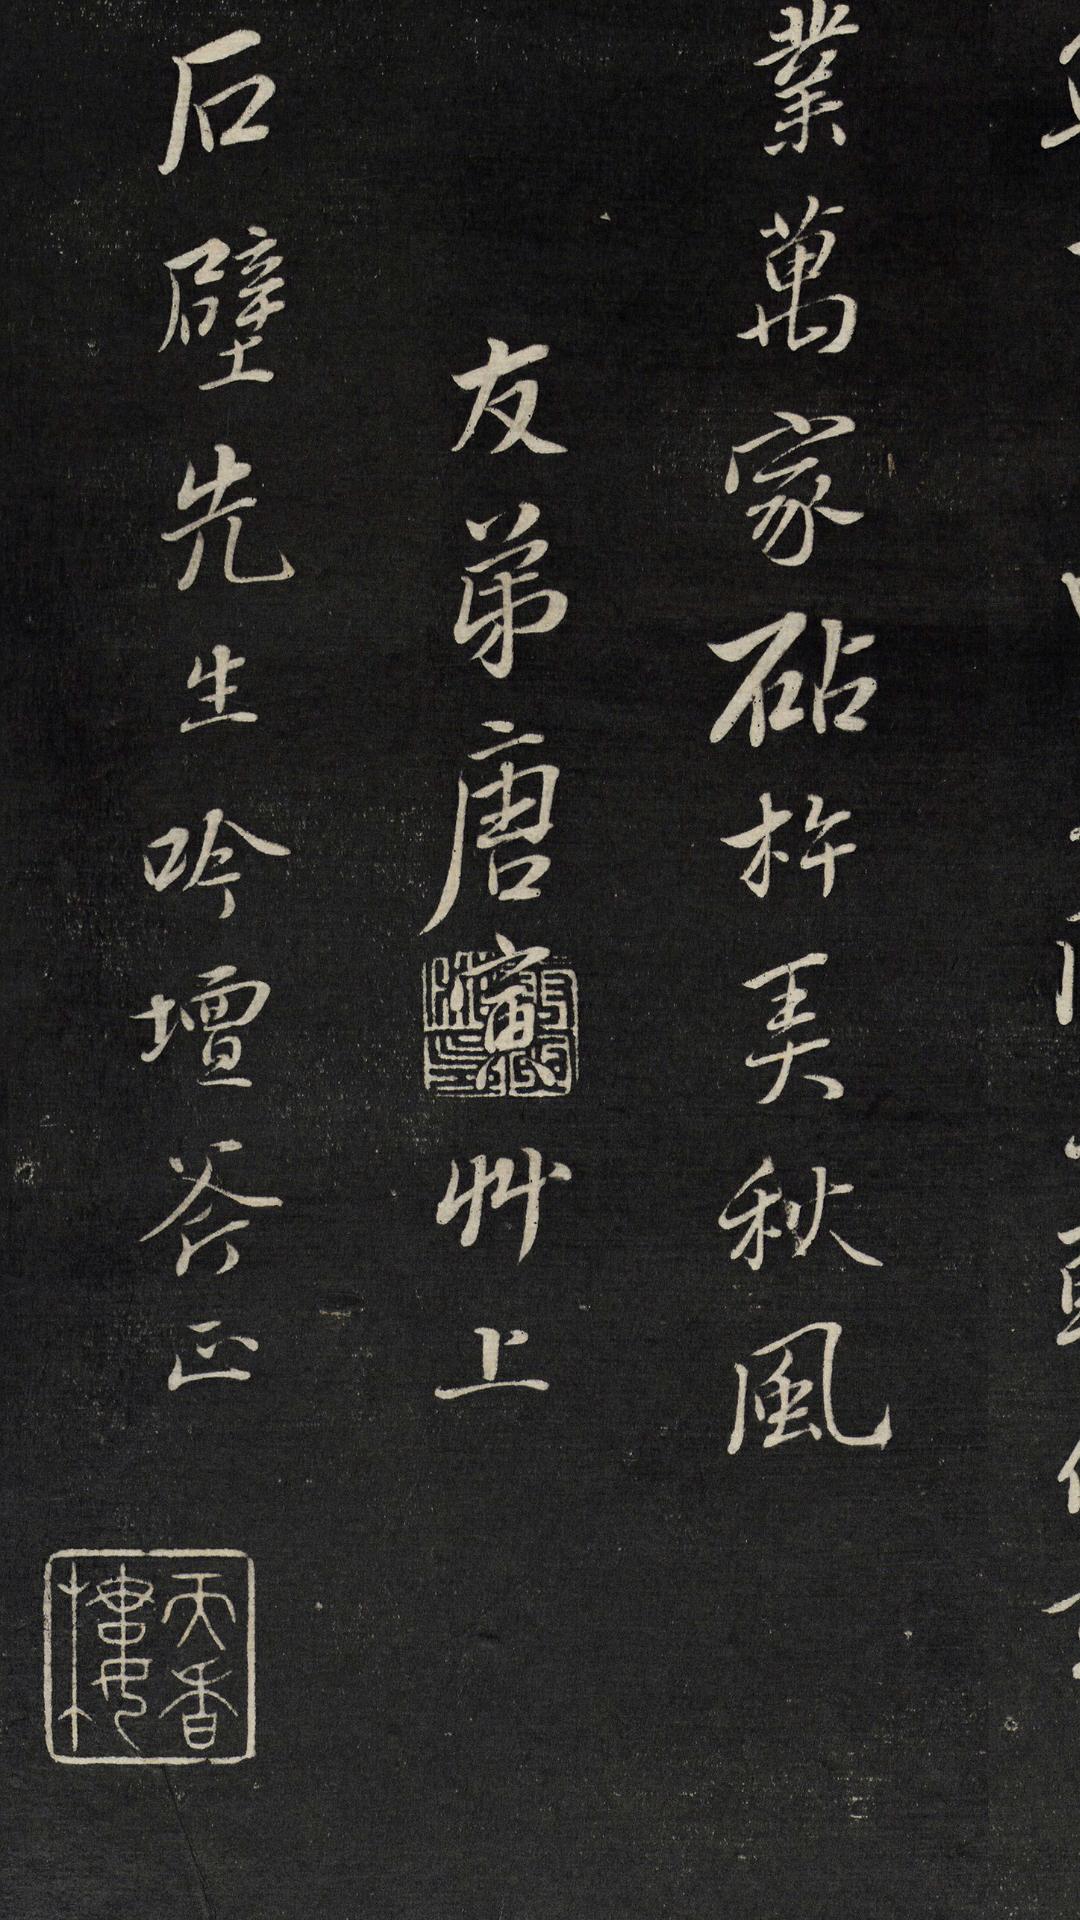 業萬家砧杵美秋風
友弟唐寅艸上
石壁先生吟壇斧正
天香樓